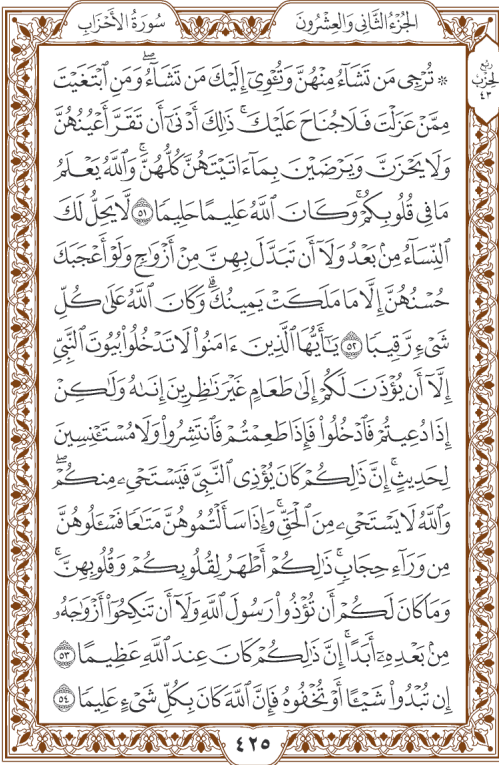 الجُزْءُ الثَّانِي وَالعِشْرُونَ
سُورَةُ الأَحْزَابِ
رُبع الحِزْب ٤٣
۞ تُرْجِي مَن تَشَآءُ مِنْهُنَّ وَتُـْٔوِيٓ إِلَيْكَ مَن تَشَآءُۖ وَمَنِ ٱبْتَغَيْتَ
مِمَّنْ عَزَلْتَ فَلَا جُنَاحَ عَلَيْكَۚ ذَٰلِكَ أَدْنَىٰٓ أَن تَقَرَّ أَعْيُنُهُنَّ
وَلَا يَحْزَنَّ وَيَرْضَيْنَ بِمَآ ءَاتَيْتَهُنَّ كُلُّهُنَّۚ وَٱللَّهُ يَعْلَمُ
مَا فِي قُلُوبِكُمْۚ وَكَانَ ٱللَّهُ عَلِيمًا حَلِيمًا ٥١ لَّا يَحِلُّ لَكَ
ٱلنِّسَآءُ مِنۢ بَعْدُ وَلَآ أَن تَبَدَّلَ بِهِنَّ مِنْ أَزْوَٰجٍ وَلَوْ أَعْجَبَكَ
حُسْنُهُنَّ إِلَّا مَا مَلَكَتْ يَمِينُكَۗ وَكَانَ ٱللَّهُ عَلَىٰ كُلِّ
شَيْءٍ رَّقِيبًا ٥٢ يَٰٓأَيُّهَا ٱلَّذِينَ ءَامَنُوا۟ لَا تَدْخُلُوا۟ بُيُوتَ ٱلنَّبِيِّ
إِلَّآ أَن يُؤْذَنَ لَكُمْ إِلَىٰ طَعَامٍ غَيْرَ نَٰظِرِينَ إِنَىٰهُ وَلَٰكِنْ
إِذَا دُعِيتُمْ فَٱدْخُلُوا۟ فَإِذَا طَعِمْتُمْ فَٱنتَشِرُوا۟ وَلَا مُسْتَـْٔنِسِينَ
لِحَدِيثٍۚ إِنَّ ذَٰلِكُمْ كَانَ يُؤْذِي ٱلنَّبِيَّ فَيَسْتَحْيِۦ مِنكُمْۖ
وَٱللَّهُ لَا يَسْتَحْيِۦ مِنَ ٱلْحَقِّۚ وَإِذَا سَأَلْتُمُوهُنَّ مَتَٰعًا فَسْـَٔلُوهُنَّ
مِن وَرَآءِ حِجَابٍۚ ذَٰلِكُمْ أَطْهَرُ لِقُلُوبِكُمْ وَقُلُوبِهِنَّۚ
وَمَا كَانَ لَكُمْ أَن تُؤْذُوا۟ رَسُولَ ٱللَّهِ وَلَآ أَن تَنكِحُوٓا۟ أَزْوَٰجَهُۥ
مِنۢ بَعْدِهِۦٓ أَبَدًاۚ إِنَّ ذَٰلِكُمْ كَانَ عِندَ ٱللَّهِ عَظِيمًا ٥٣
إِن تُبْدُوا۟ شَيْـًٔا أَوْ تُخْفُوهُ فَإِنَّ ٱللَّهَ كَانَ بِكُلِّ شَيْءٍ عَلِيمًا ٥٤
٤٢٥